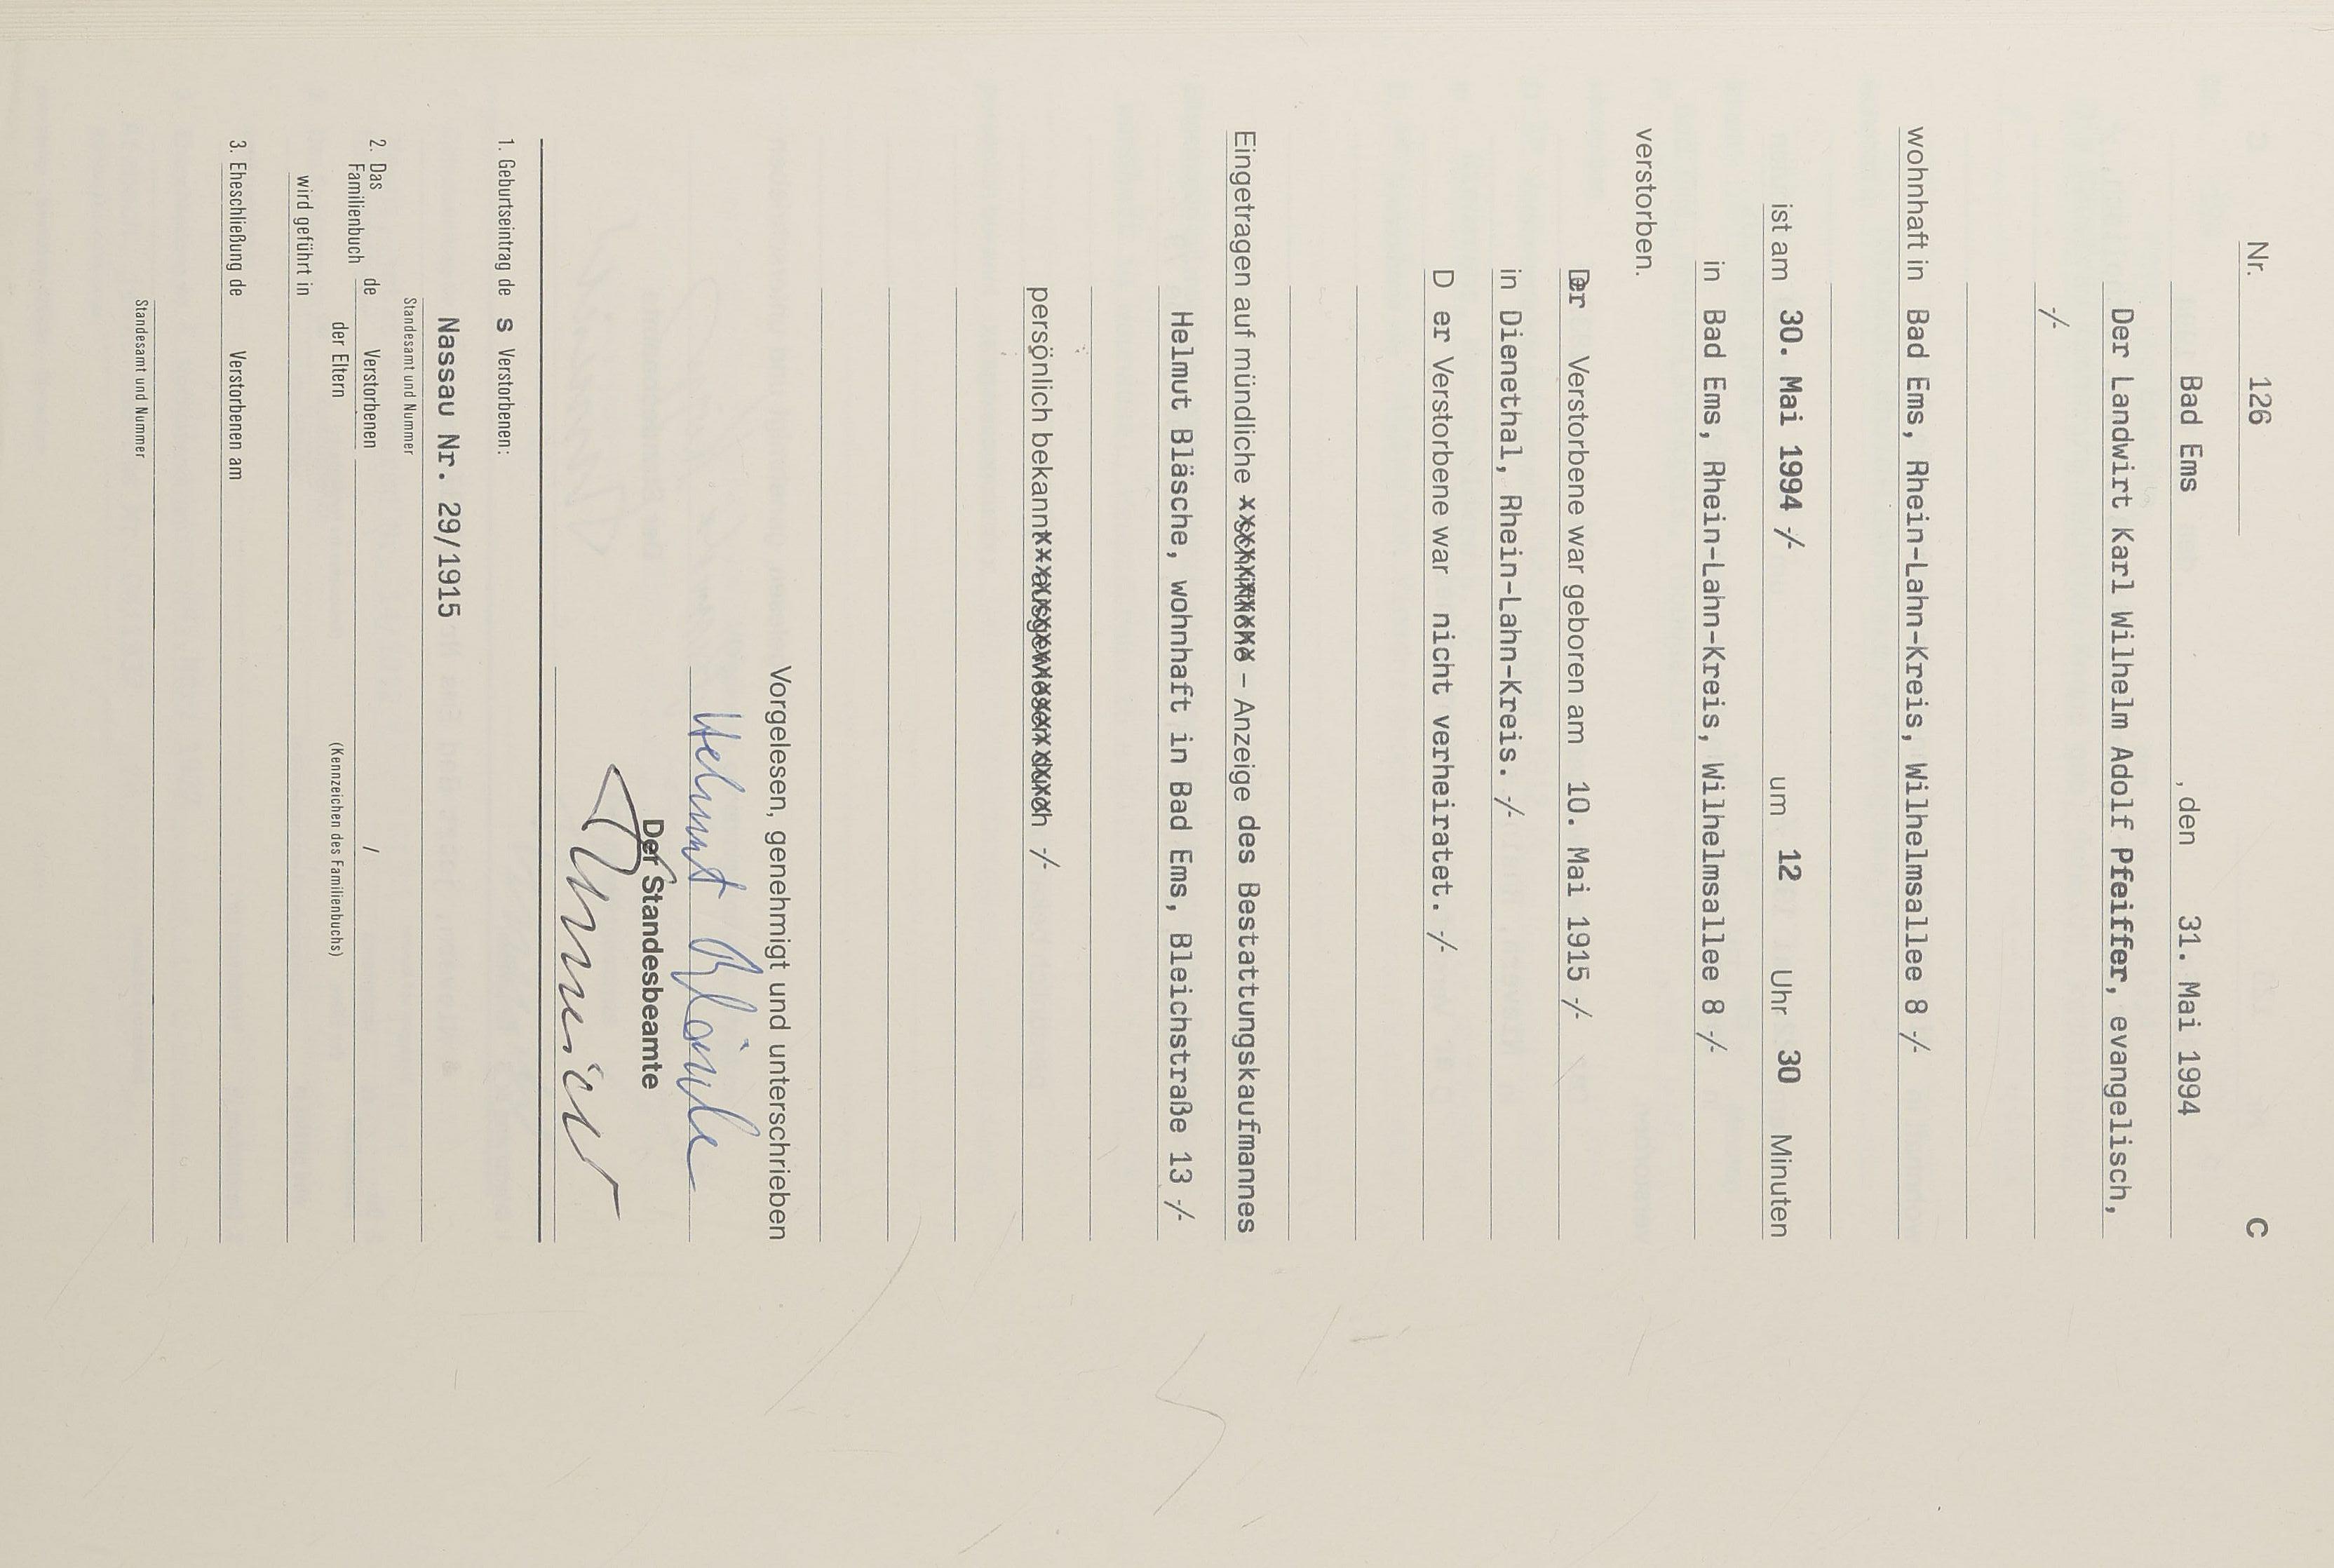 Nr. 126 C
Bad Ems , den 31. Mai 1994
Der Landwirt Karl Wilhelm Adolf Pfeiffer, evangelisch,
-/-
wohnhaft in Bad Ems, Rhein-Lahn-Kreis, Wilhelmsallee 8 -/-
ist am 30. Mai 1994 -/- um 12 Uhr 30 Minuten
in Bad Ems, Rhein-Lahn-Kreis, Wilhelmsallee 8 -/-
verstorben.
Der Verstorbene war geboren am 10. Mai 1915 -/-
in Dienethal, Rhein-Lahn-Kreis. -/-
D er Verstorbene war nicht verheiratet. -/-
Eingetragen auf mündliche schriftliche – Anzeige des Bestattungskaufmannes
Helmut Bläsche, wohnhaft in Bad Ems, Bleichstraße 13 -/-
persönlich bekannt ausgewiesen durch -/-
Vorgelesen, genehmigt und unterschrieben
Helmut Bläsche
Der Standesbeamte
1. Geburtseintrag de s Verstorbenen:
Nassau Nr. 29/1915
Standesamt und Nummer
2. Das Familienbuch de Verstorbenen /
der Eltern (Kennzeichen des Familienbuchs)
wird geführt in
3. Eheschließung de Verstorbenen am
Standesamt und Nummer